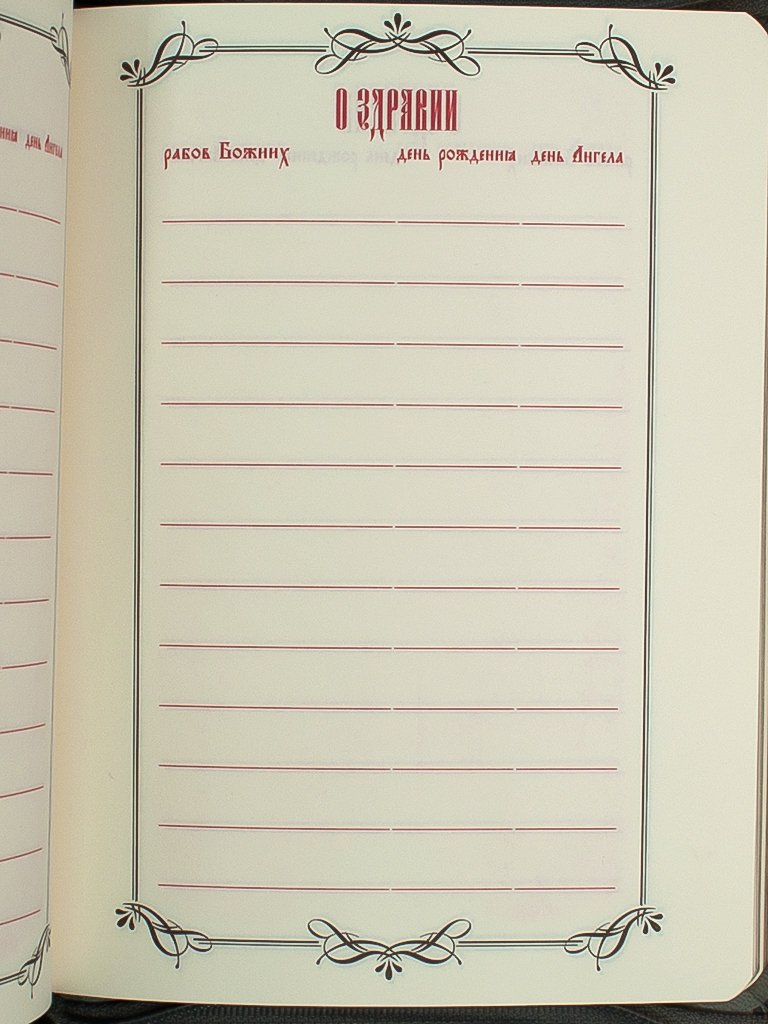 О ЗДРАВИИ
рабов Божиих день рождения день Ангела
день Ангела